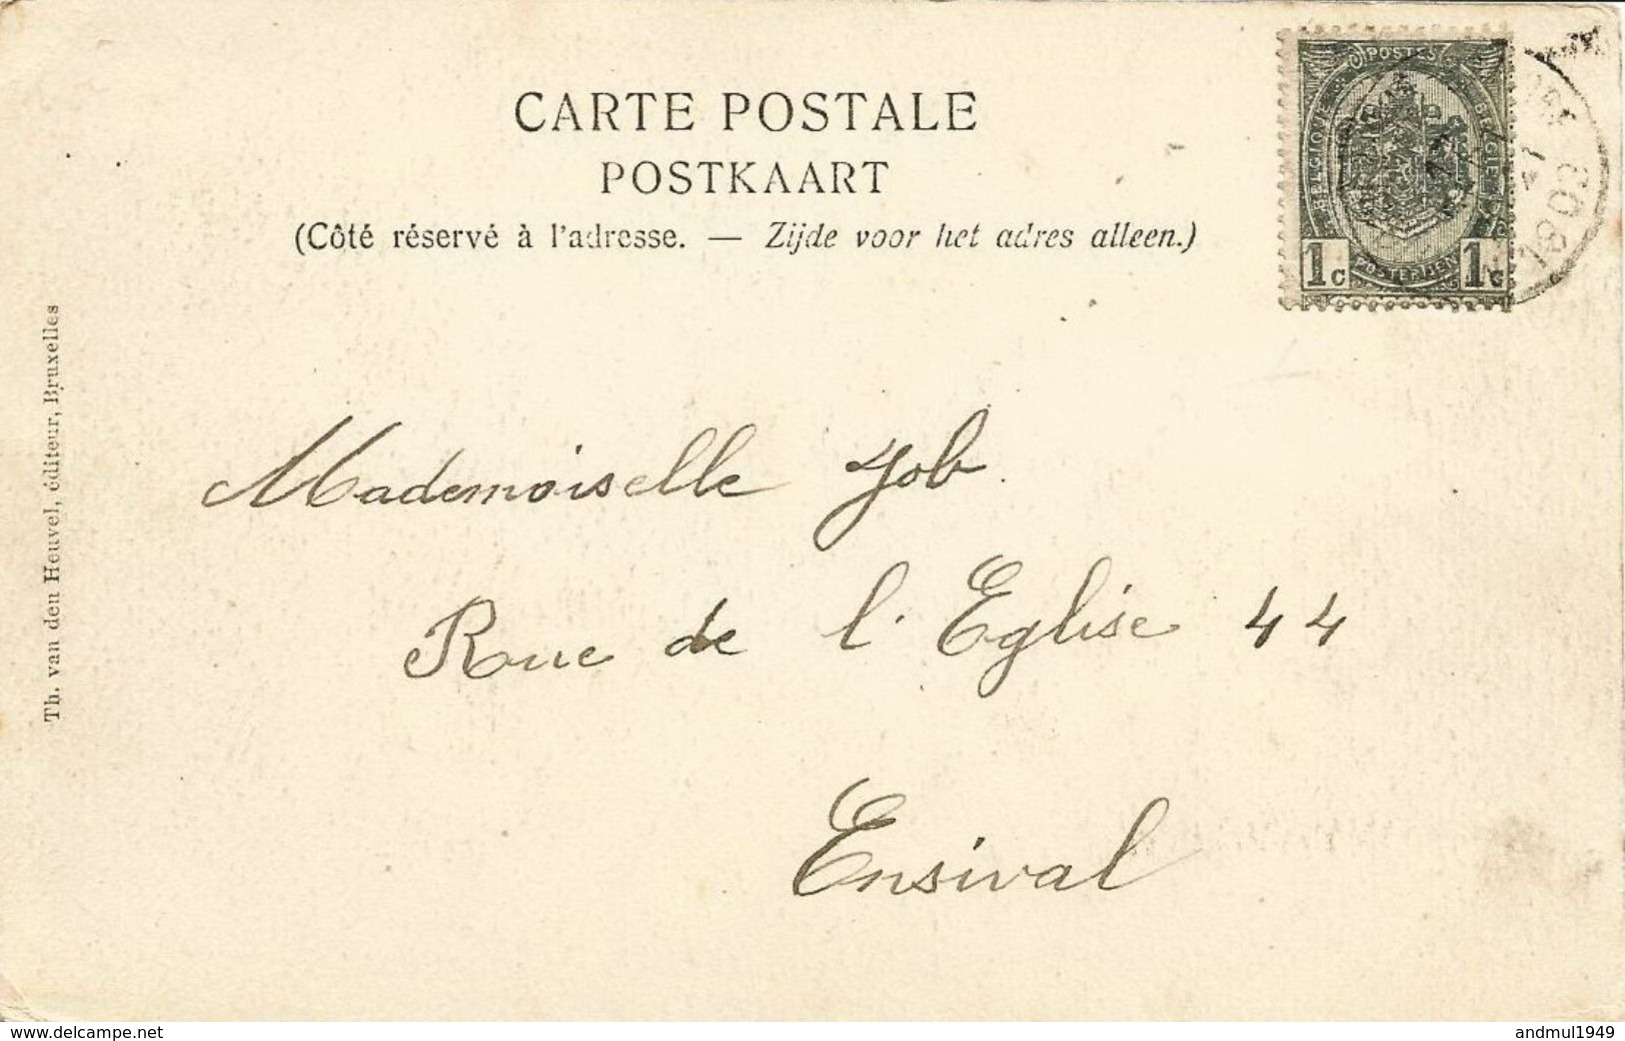 CARTE POSTALE
POSTKAART
(Côté réservé à l'adresse. — Zijde voor het adres alleen.)
POSTES
BELGIQUE
BELGIE
POSTERIJEN
1c 1c
1903
Th. van den Heuvel, éditeur, Bruxelles
Mademoiselle Job.
Rue de l'Eglise 44
Ensival
www.delcampe.net
andmul1949